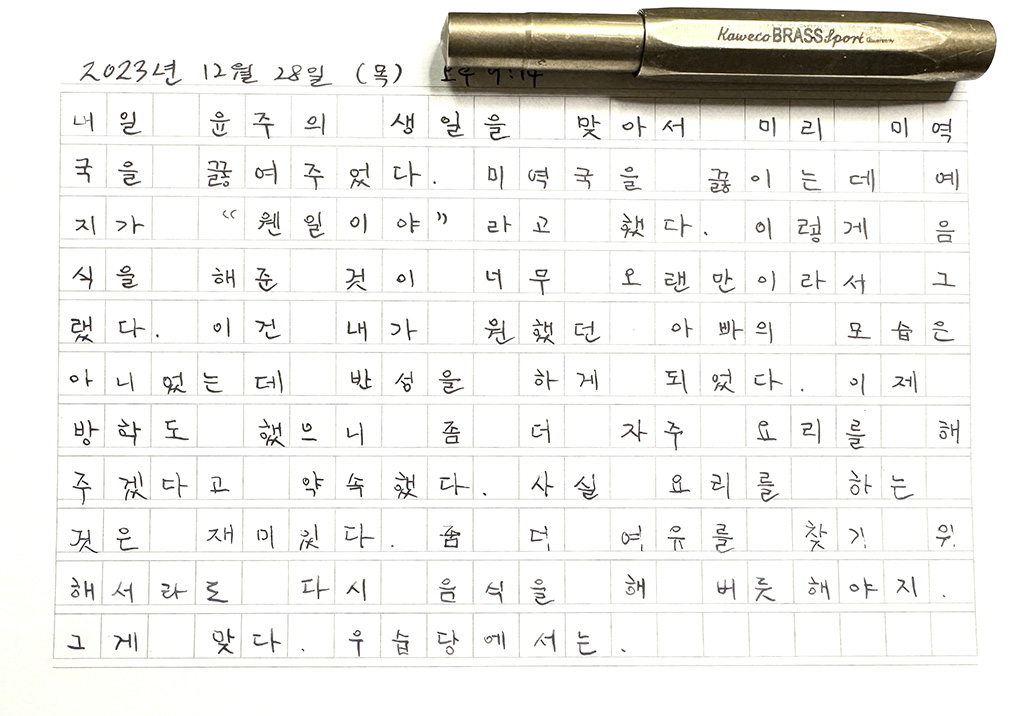 Kaweco BRASS Sport
2023년 12월 28일 (목)
내일 윤주의 생일을 맞아서 미리 미역
국을 끓여주었다. 미역국을 끓이는데 예
지가 “웬일이야” 라고 했다. 이렇게 음
식을 해준 것이 너무 오랜만이라서 그
랬다. 이건 내가 원했던 아빠의 모습은
아니었는데 반성을 하게 되었다. 이제
방학도 했으니 좀 더 자주 요리를 해
주겠다고 약속했다. 사실 요리를 하는
것은 재미있다. 좀 더 여유를 찾기 위
해서라도 다시 음식을 해 버릇해야지.
그게 맞다. 우습당에서는.